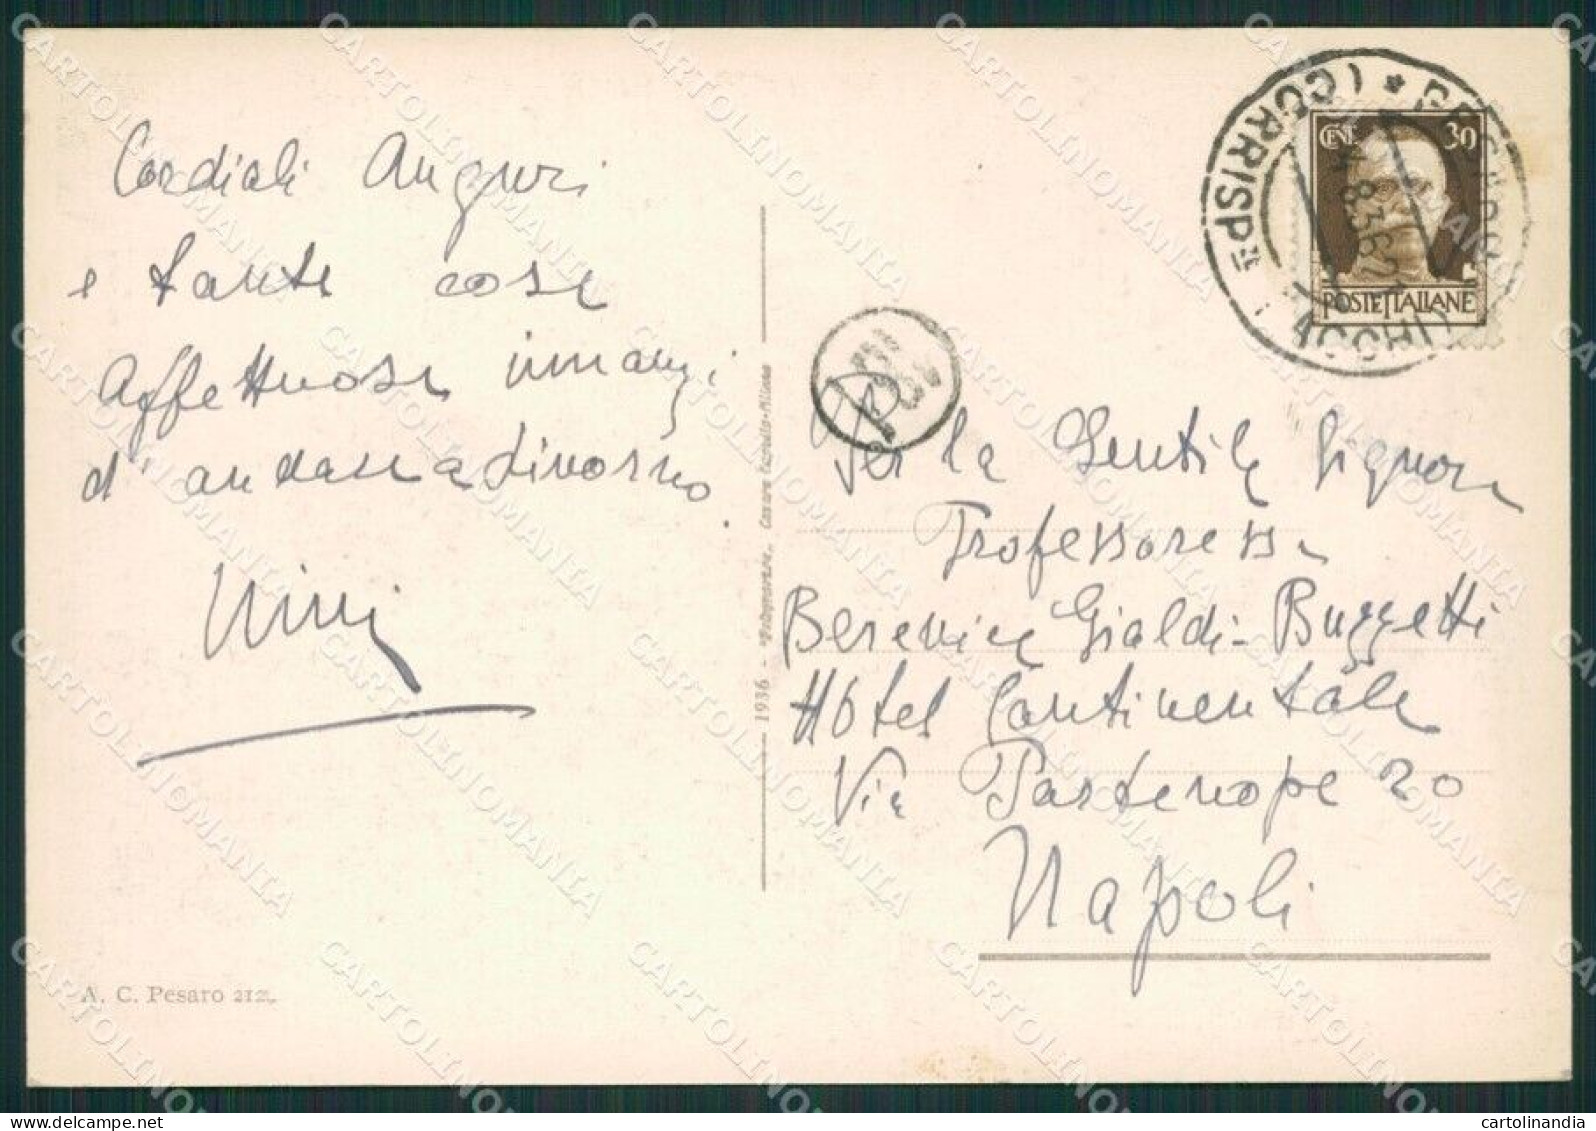 Cordiali Auguri
e tante cose
affettuose innanzi
d'andare a Livorno.
Nini
A. C. Pesaro
1936 - Fotogravure. Cesare Capello-Milano
CENT 30
POSTE ITALIANE
(CORRISP.
PACCHI)
8.36
Per la Gentile Signora
Professoressa
Berenice Gialdi-Buzzetti
Hôtel Continentale
Via Partenope 20
Napoli
CARTOLINOMANIA
delcampe.net
cartolinandia